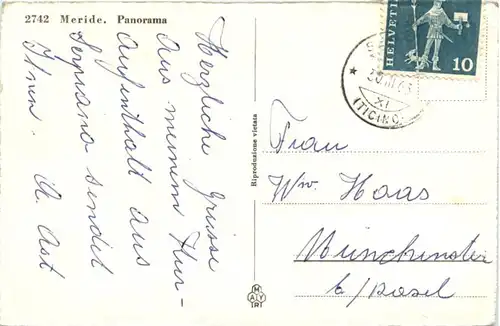 2742 Meride. Panorama
Herzliche Grüsse
aus meinem Kur-
aufenthalt aus
Serpiano sendet
Ihnen A. Ast
Riproduzione vietata
HELVETIA
10
XI
(TICINO)
Frau
Ww. Haas
Münchenstein
b/Basel